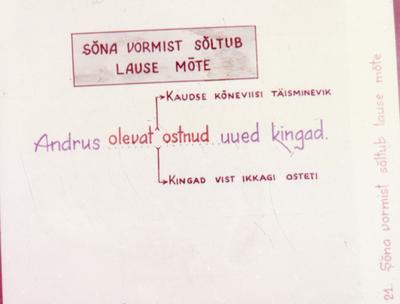 SÕNA VORMIST SÕLTUB
LAUSE MÕTE
KAUDSE KÕNEVIISI TÄISMINEVIK
Andrus olevat ostnud uued kingad.
KINGAD VIST IKKAGI OSTETI
21. Sõna vormist sõltub lause mõte